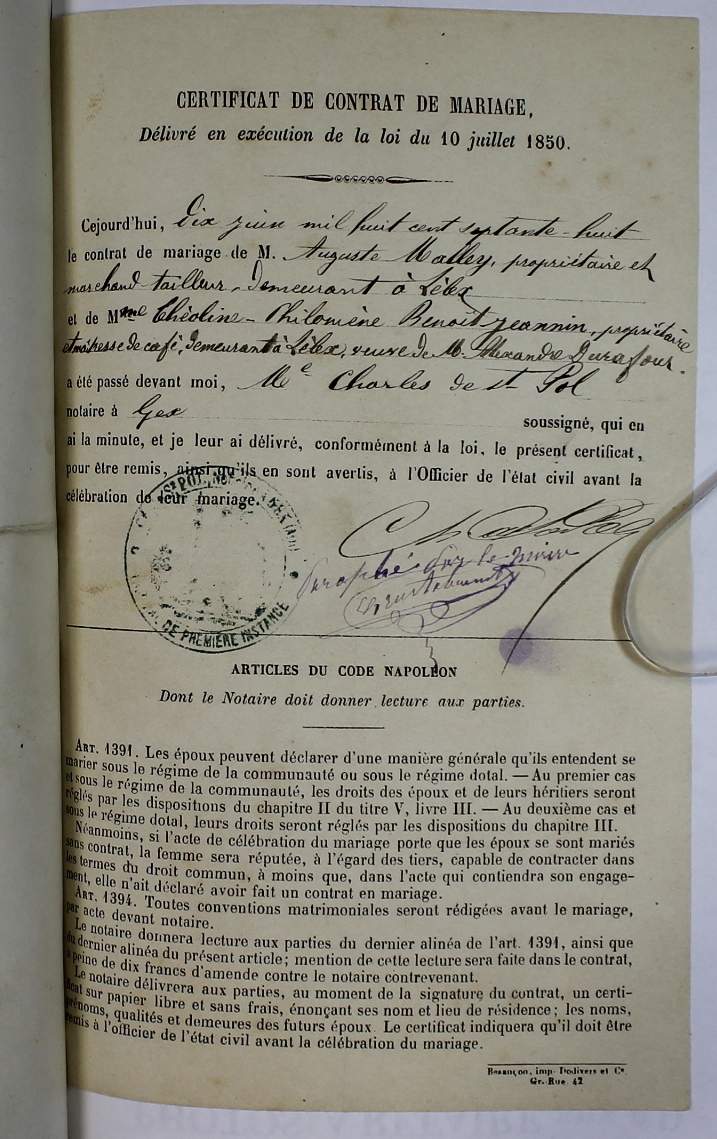 CERTIFICAT DE CONTRAT DE MARIAGE,
Délivré en exécution de la loi du 10 juillet 1850.
Cejourd'hui, Dix juin mil huit cent septante-huit
le contrat de mariage de M. Auguste Malley, propriétaire et
marchand tailleur, Demeurant à Lélex
et de Mme Théoline-Philomène Benoît-Jeannin, propriétaire
et maîtresse de café, demeurant à Lélex, veuve de M. Alexandre Durafour.
a été passé devant moi, Me Charles de St Pol
notaire à Gex
soussigné, qui en
ai la minute, et je leur ai délivré, conformément à la loi, le présent certificat,
pour être remis, ainsi qu'ils en sont avertis, à l'Officier de l'état civil avant la
célébration de leur mariage.
DE PREMIÈRE INSTANCE
paraphé par le maire
ARTICLES DU CODE NAPOLÉON
Dont le Notaire doit donner lecture aux parties.
ART. 1391. Les époux peuvent déclarer d'une manière générale qu'ils entendent se
marier sous le régime de la communauté ou sous le régime dotal. — Au premier cas
et sous le régime de la communauté, les droits des époux et de leurs héritiers seront
réglés par les dispositions du chapitre II du titre V, livre III. — Au deuxième cas et
sous le régime dotal, leurs droits seront réglés par les dispositions du chapitre III.
Néanmoins, si l'acte de célébration du mariage porte que les époux se sont mariés
sans contrat, la femme sera réputée, à l'égard des tiers, capable de contracter dans
les termes du droit commun, à moins que, dans l'acte qui contiendra son engage-
ment, elle n'ait déclaré avoir fait un contrat en mariage.
ART. 1394. Toutes conventions matrimoniales seront rédigées avant le mariage,
par acte devant notaire.
Le notaire donnera lecture aux parties du dernier alinéa de l'art. 1391, ainsi que
du dernier alinéa du présent article; mention de cette lecture sera faite dans le contrat,
à peine de dix francs d'amende contre le notaire contrevenant.
Le notaire délivrera aux parties, au moment de la signature du contrat, un certi-
ficat sur papier libre et sans frais, énonçant ses nom et lieu de résidence; les noms,
prénoms, qualités et demeures des futurs époux. Le certificat indiquera qu'il doit être
remis à l'officier de l'état civil avant la célébration du mariage.
Besançon, imp. Dodivers et Ce
Gr.-Rue 42